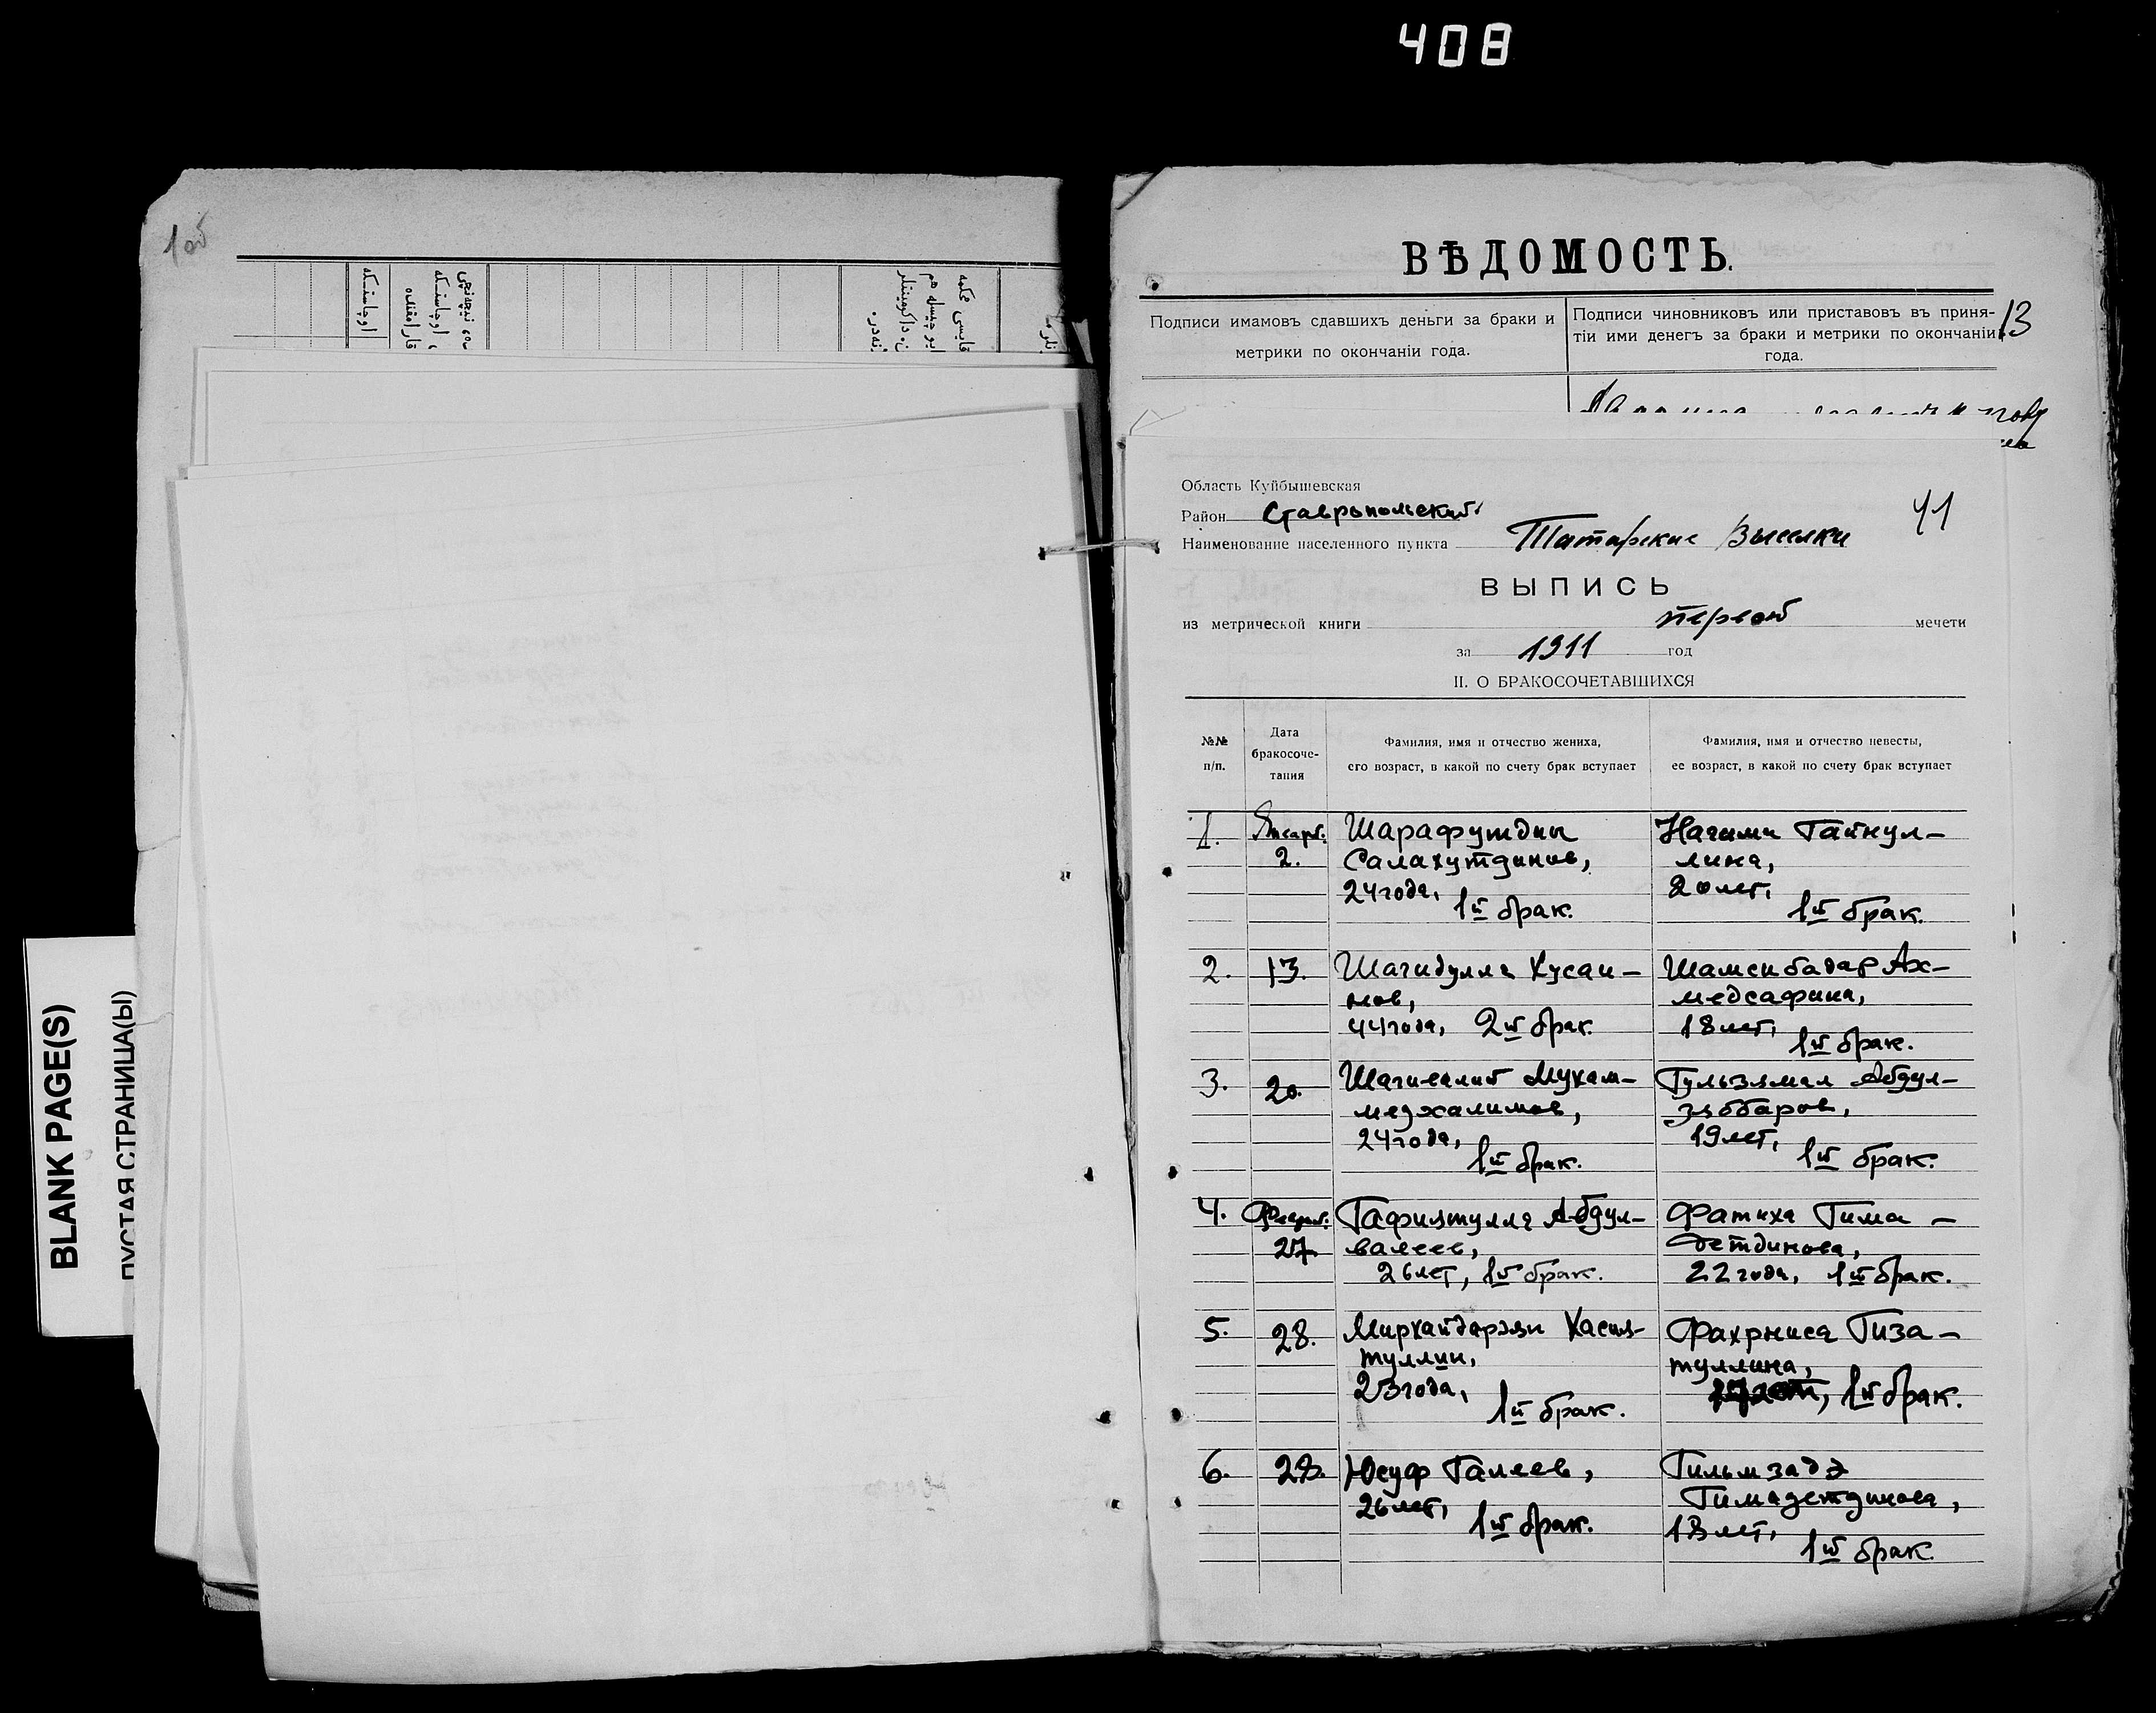 408
1 об
ВѢДОМОСТЬ.
Подписи имамовъ сдавшихъ деньги за браки и
метрики по окончаніи года.
Подписи чиновниковъ или приставовъ въ приня-
тіи ими денегъ за браки и метрики по окончаніи
года.
13
Область Куйбышевская
Район Ставропольский
41
Наименование населенного пункта Татарские Выселки
ВЫПИСЬ
из метрической книги первой мечети
за 1911 год
II. О БРАКОСОЧЕТАВШИХСЯ
№№
п/п.
Дата
бракосоче-
тания
Фамилия, имя и отчество жениха,
его возраст, в какой по счету брак вступает
Фамилия, имя и отчество невесты,
ее возраст, в какой по счету брак вступает
1.
Январ.
2.
Шарафутдин
Салахутдинов,
24 года,
1й брак.
Нагими Гайнул-
лина,
20 лет,
1й брак.
2.
13.
Шагидулла Хусаи-
нов,
44 года, 2й брак.
Шамсибадар Ах-
медсафина,
18 лет,
1й брак.
3.
20.
Шагивалий Мухам-
медхалимов,
24 года,
1й брак.
Гульзямал Абдул-
зяббаров,
19 лет,
1й брак.
4.
Феврал.
27.
Гафиятулла Абдул-
валеев,
26 лет, 1й брак.
Фатиха Гима-
детдинова,
22 года, 1й брак.
5.
28.
Мирхайдарзян Хасия-
туллин,
23 года,
1й брак.
Фахрниса Гиза-
туллина,
1й брак.
6.
28.
Юсуф Галеев,
26 лет,
1й брак.
Гильмзадэ
Гимадетдинова,
18 лет,
1й брак.
BLANK PAGE(S)
ПУСТАЯ СТРАНИЦА(Ы)